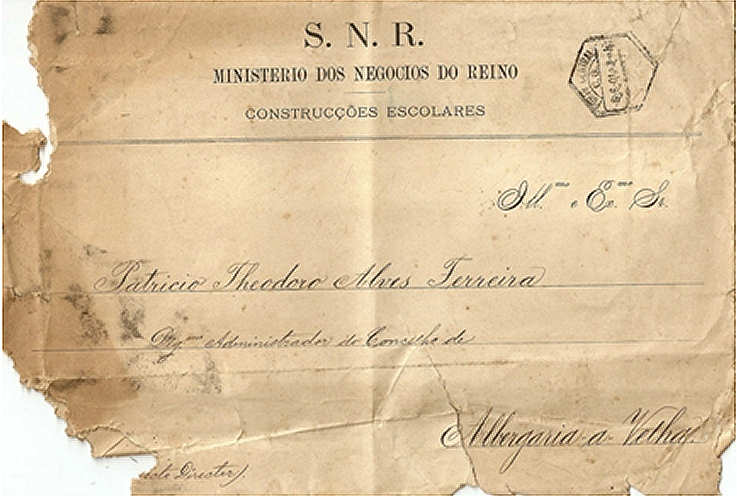 S. N. R.
MINISTERIO DOS NEGOCIOS DO REINO
CONSTRUCÇÕES ESCOLARES
Ill.mo e Ex.mo Sr.
Patricio Theodoro Alves Ferreira
Dig.mo Administrador do Concelho de
Albergaria-a-Velha.
Director).